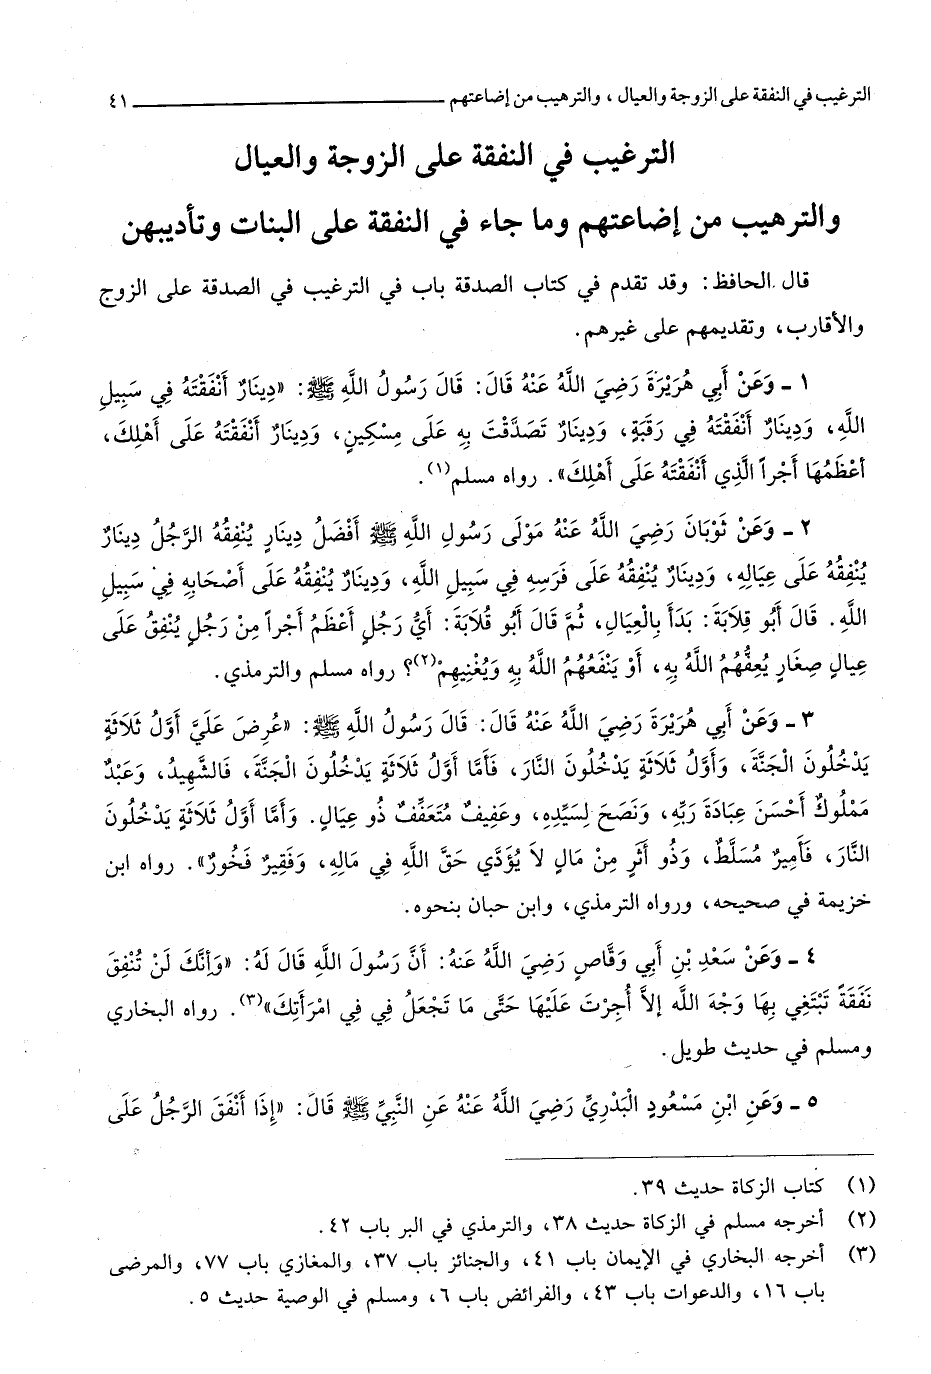 الترغيب في النفقة على الزوجة والعيال ، والترهيب من إضاعتهم ــــــــ ٤١
الترغيب في النفقة على الزوجة والعيال
والترهيب من إضاعتهم وما جاء في النفقة على البنات وتأديبهن
قال الحافظ: وقد تقدم في كتاب الصدقة باب في الترغيب في الصدقة على الزوج
والأقارب، وتقديمهم على غيرهم.
١ ـ وَعَنْ أَبِي هُرَيْرَةَ رَضِيَ اللَّهُ عَنْهُ قَالَ: قَالَ رَسُولُ اللَّهِ ﷺ: «دِينَارٌ أَنْفَقْتَهُ فِي سَبِيلِ
اللَّهِ، وَدِينَارٌ أَنْفَقْتَهُ فِي رَقَبَةٍ، وَدِينَارٌ تَصَدَّقْتَ بِهِ عَلَى مِسْكِينٍ، وَدِينَارٌ أَنْفَقْتَهُ عَلَى أَهْلِكَ،
أَعْظَمُهَا أَجْراً الَّذِي أَنْفَقْتَهُ عَلَى أَهْلِكَ». رواه مسلم(١).
٢ ـ وَعَنْ ثَوْبَانَ رَضِيَ اللَّهُ عَنْهُ مَوْلَى رَسُولِ اللَّهِ ﷺ أَفْضَلُ دِينَارٍ يُنْفِقُهُ الرَّجُلُ دِينَارٌ
يُنْفِقُهُ عَلَى عِيَالِهِ، وَدِينَارٌ يُنْفِقُهُ عَلَى فَرَسِهِ فِي سَبِيلِ اللَّهِ، وَدِينَارٌ يُنْفِقُهُ عَلَى أَصْحَابِهِ فِي سَبِيلِ
اللَّهِ. قَالَ أَبُو قِلَابَةَ: بَدَأَ بِالْعِيَالِ، ثُمَّ قَالَ أَبُو قُلَابَةَ: أَيُّ رَجُلٍ أَعْظَمُ أَجْراً مِنْ رَجُلٍ يُنْفِقُ عَلَى
عِيالٍ صِغَارٍ يُعِفُّهُمُ اللَّهُ بِهِ، أَوْ يَنْفَعُهُمُ اللَّهُ بِهِ وَيُغْنِيهِمْ(٢)؟ رواه مسلم والترمذي.
٣ ـ وَعَنْ أَبِي هُرَيْرَةَ رَضِيَ اللَّهُ عَنْهُ قَالَ: قَالَ رَسُولُ اللَّهِ ﷺ: «عُرِضَ عَلَيَّ أَوَّلُ ثَلَاثَةٍ
يَدْخُلُونَ الْجَنَّةَ، وَأَوَّلُ ثَلَاثَةٍ يَدْخُلُونَ النَّارَ، فَأَمَّا أَوَّلُ ثَلَاثَةٍ يَدْخُلُونَ الْجَنَّةَ، فَالشَّهِيدُ، وَعَبْدٌ
مَمْلُوكٌ أَحْسَنَ عِبَادَةَ رَبِّهِ، وَنَصَحَ لِسَيِّدِهِ، وعَفِيفٌ مُتَعَفِّفٌ ذُو عِيَالٍ. وَأَمَّا أَوَّلُ ثَلَاثَةٍ يَدْخُلُونَ
النَّارَ، فَأَمِيرٌ مُسَلَّطٌ، وَذُو أَثَرٍ مِنْ مَالٍ لاَ يُؤَدَّي حَقَّ اللَّهِ فِي مَالِهِ، وَفَقِيرٌ فَخُورٌ». رواه ابن
خزيمة في صحيحه، ورواه الترمذي، وابن حبان بنحوه.
٤ ـ وَعَنْ سَعْدِ بْنِ أَبِي وَقَّاصٍ رَضِيَ اللَّهُ عَنهُ: أَنَّ رَسُولَ اللَّهِ قَالَ لَهُ: «وَإِنَّكَ لَنْ تُنْفِقَ
نَفَقَةً تَبْتَغِي بِهَا وَجْهَ اللَّه إلاَّ أُجِرْتَ عَلَيْهَا حَتَّى مَا تَجْعَلُ فِي فِي امْرَأَتِكَ»(٣). رواه البخاري
ومسلم في حديث طويل.
٥ ـ وَعَنِ ابْنِ مَسْعُودٍ الْبَدْرِيِّ رَضِيَ اللَّهُ عَنْهُ عَنِ النَّبِيِّ ﷺ قَالَ: «إِذَا أَنْفَقَ الرَّجُلُ عَلَى
(١) كتاب الزكاة حديث ٣٩.
(٢) أخرجه مسلم في الزكاة حديث ٣٨، والترمذي في البر باب ٤٢.
(٣) أخرجه البخاري في الإيمان باب ٤١، والجنائز باب ٣٧، والمغازي باب ٧٧، والمرضى
باب ١٦، والدعوات باب ٤٣، والفرائض باب ٦، ومسلم في الوصية حديث ٥.